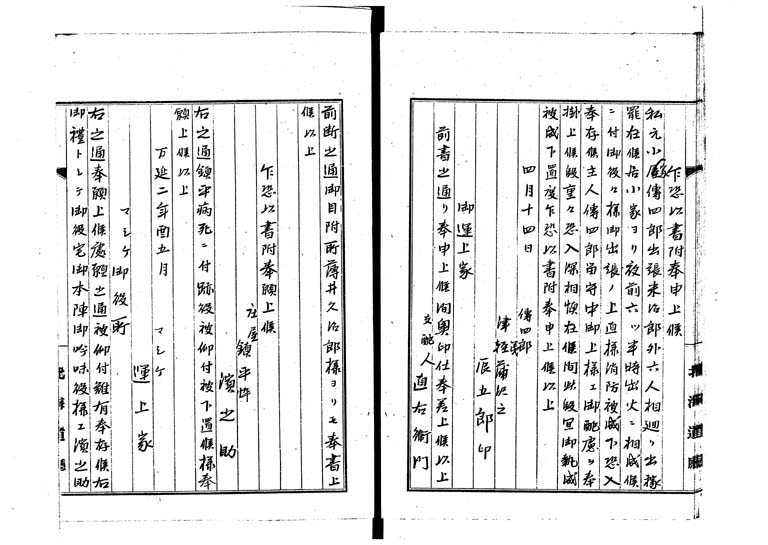 乍恐以書附奉申上候
私元小家傳四郎出張来治郎外六人相廻り出稼
罷在候居小家ヨリ夜前六ツ半時出火ニ相成候
ニ付御役々様御出張ノ上直様消防被成下恐入
奉存候主人傳四郎留守中御上様エ御配慮ヲ奉
掛上候段重々恐入深相慎在候間此段宜御執成
被成下置度乍恐以書附奉申上候以上
四月十四日
傳四郎
津軽蒲
辰五郎印
御運上家
前書之通り奉申上候間奥印仕奉差上候以上
支配人 直右衛門
前断之通御目附所薄井久治郎様ヨリモ奉書上
候以上
乍恐以書附奉願上候
庄屋鎮平忰
濱之助
右之通鎮平病死ニ付跡役被仰付被下置候様奉
願上候以上
万延二年酉五月
マシケ
運上家
マシケ御役所
右之通奉願上候處願之通被仰付難有奉存候右
御禮トシテ御役宅御本陣御吟味役様エ濱之助
北海道